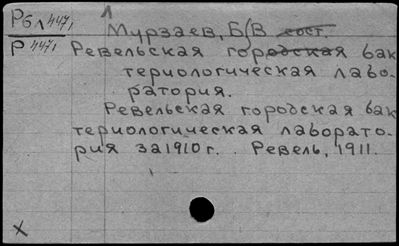 РбЛ 4471
Р 4471
Мурзаев, Б/В сост.
Ревельская городская бак
териологическая лабо-
ратория.
Ревельская городская бак
териологическая лаборато-
рия за 1910 г. Ревель, 1911.
X